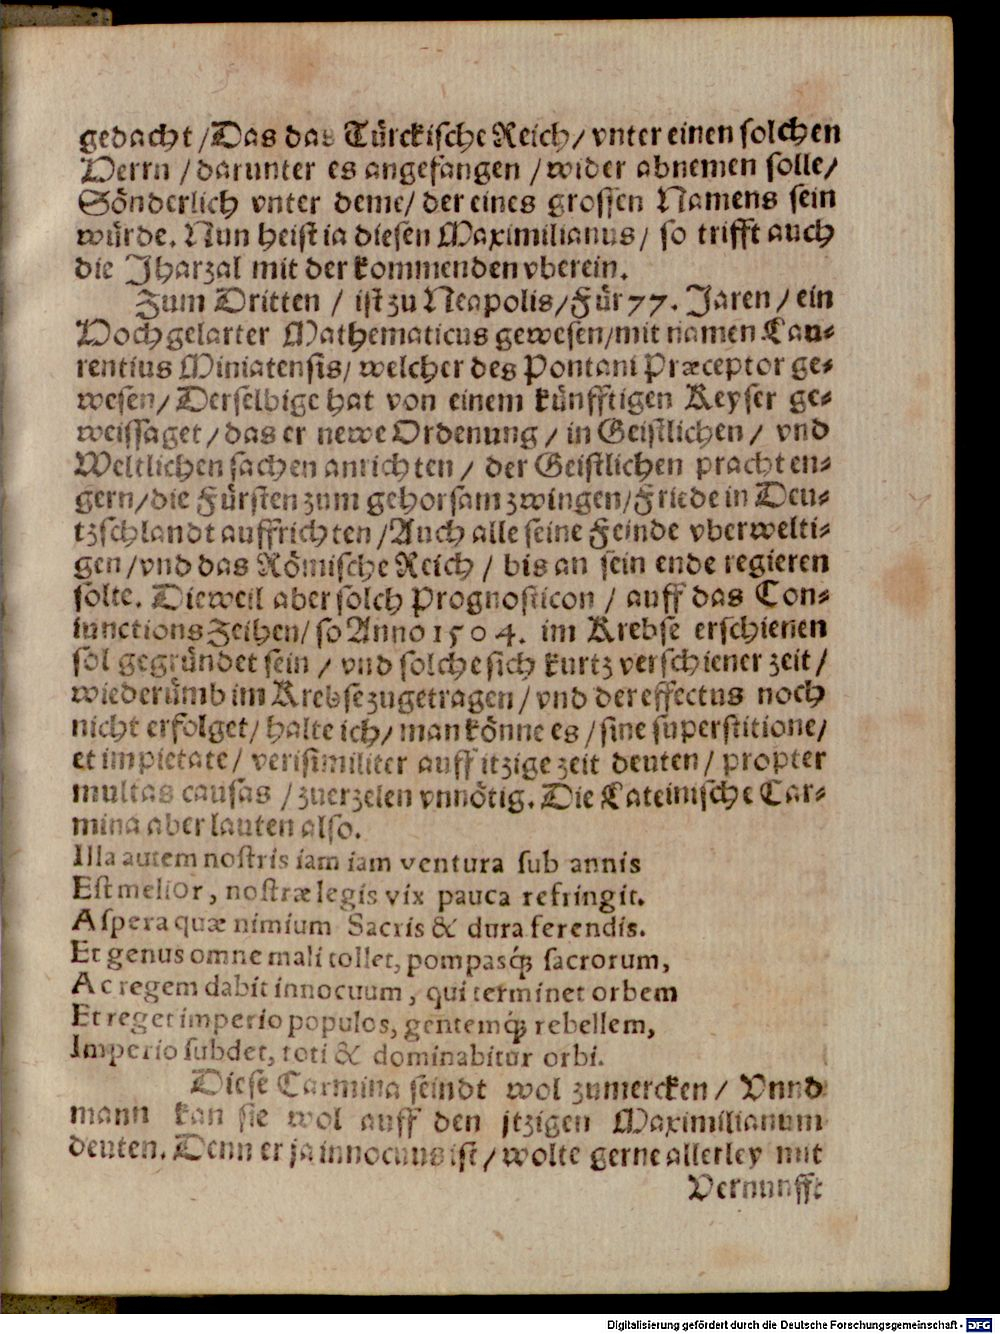 gedacht / Das das Türckische Reich / vnter einen solchen
Herrn / darunter es angefangen / wider abnemen solle /
Sönderlich vnter deme / der eines grossen Namens sein
würde. Nun heist ia diesen Maximilianus / so trifft auch
die Jharzal mit der kommenden vberein.
Zum Dritten / ist zu Neapolis / Für 77. Jaren / ein
Hochgelarter Mathematicus gewesen / mit namen Lau-
rentius Miniatensis / welcher des Pontani Præceptor ge-
wesen / Derselbige hat von einem künfftigen Keyser ge-
weissaget / das er newe Ordenung / in Geistlichen / vnd
Weltlichen sachen anrichten / der Geistlichen pracht en-
gern / die Fürsten zum gehorsam zwingen / Friede in Deu-
tzschlandt auffrichten / Auch alle seine Feinde vberwelti-
gen / vnd das Römische Reich / bis an sein ende regieren
solte. Dieweil aber solch Prognosticon / auff das Con-
iunctions Zeihen / so Anno 1504. im Krebse erschienen
sol gegründet sein / vnd solche sich kurtz verschiener zeit /
wiederümb im Krebse zugetragen / vnd der effectus noch
nicht erfolget / halte ich / man könne es / sine superstitione /
et impietate / verisimiliter auff itzige zeit deuten / propter
multas causas / zuerzelen vnnötig. Die Lateinische Car-
mina aber lauten also.
Illa autem nostris iam iam ventura sub annis
Est melior, nostræ legis vix pauca refringit.
Aspera quæ nimium Sacris & dura ferendis.
Et genus omne mali tollet, pompasq́; sacrorum,
Ac regem dabit innocuum, qui terminet orbem
Et reget imperio populos, gentemq́; rebellem,
Imperio subdet, toti & dominabitur orbi.
Diese Carmina seindt wol zumercken / Vnnd
mann kan sie wol auff den jtzigen Maximilianum
deuten. Denn er ja innocuus ist / wolte gerne allerley mit
Vernunfft
Digitalisierung gefördert durch die Deutsche Forschungsgemeinschaft - DFG